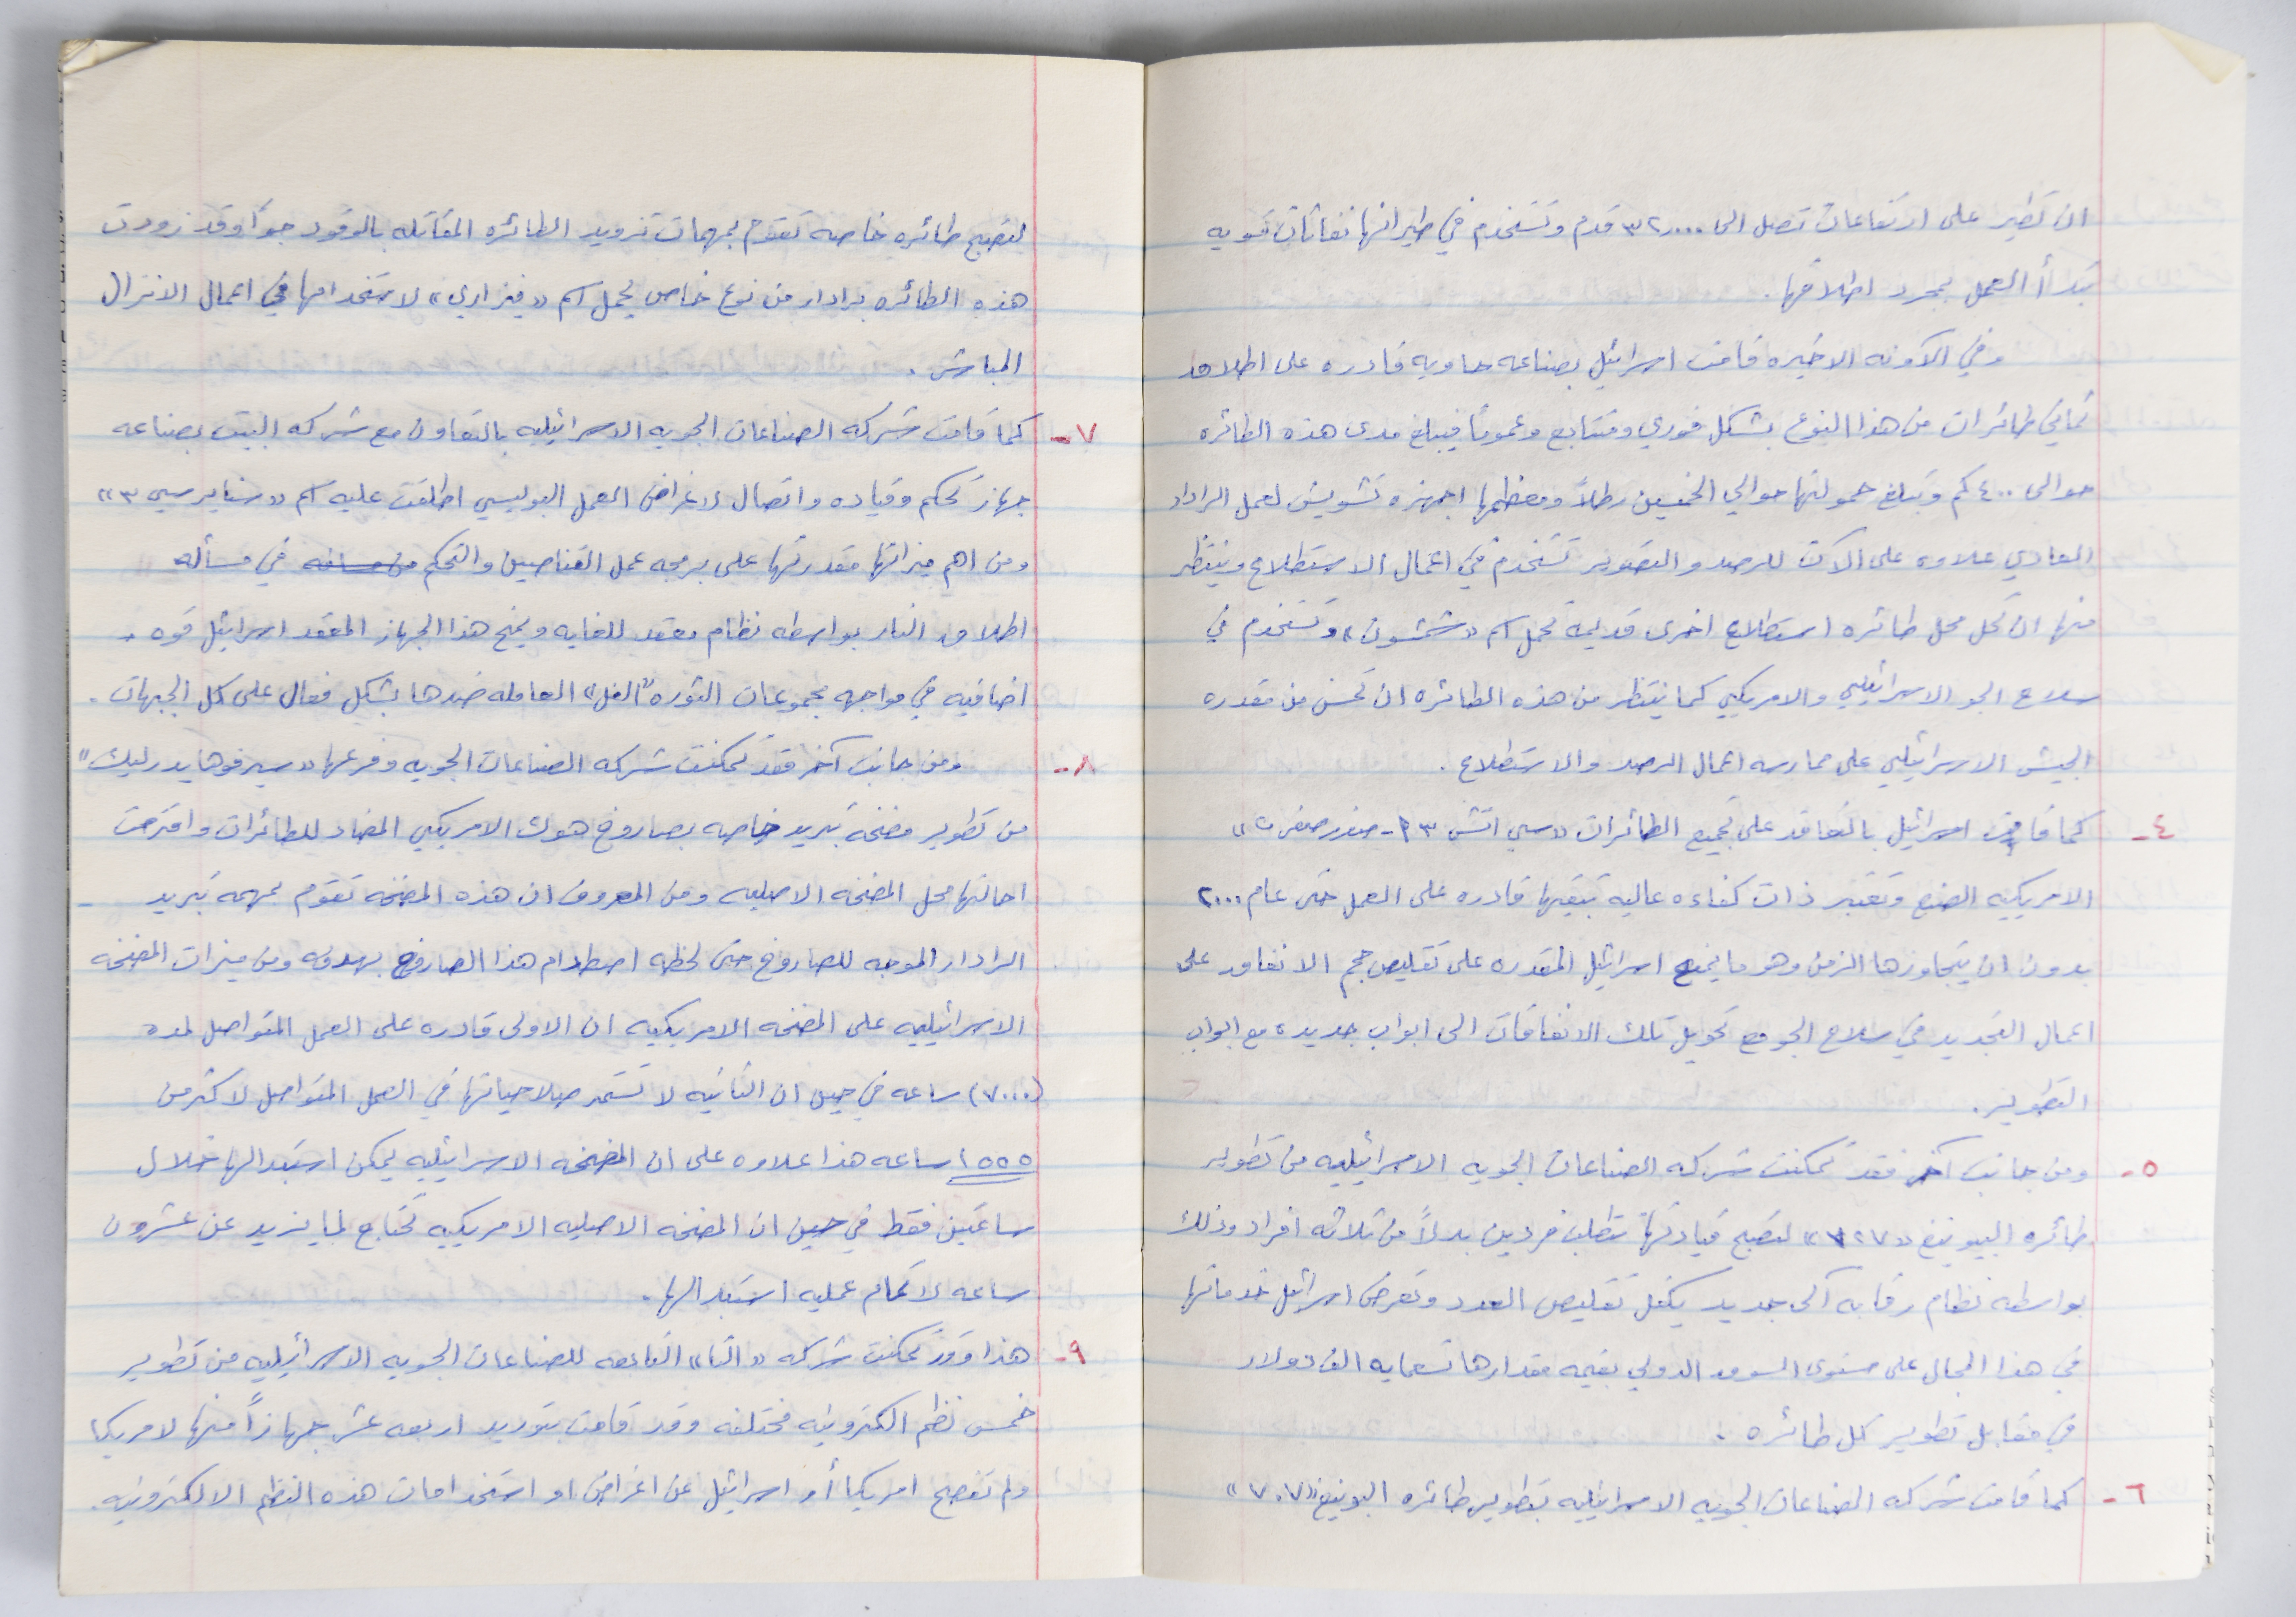 ان تطير على ارتفاعات تصل الى ٣٢,٠٠٠ قدم وتستخدم في طيرانها نفاثات قويه
تبدأ العمل بمجرد اطلاقها.
وفي الآونه الاخيره قامت اسرائيل بصناعه حاويه قادره على اطلاق
ثماني طائرات من هذا النوع بشكل فوري ومتتابع وعموماً فيبلغ مدى هذه الطائره
حوالى ٤٠٠ كم وتبلغ حمولتها حوالي الخمسين رطلاً ومعظمها اجهزه تشويش لعمل الرادار
العادي علاوه على الآت للرصد والتصوير تستخدم في اعمال الاستطلاع وينتظر
منها ان تحل محل طائره استطلاع اخرى قديمة تحمل اسم «شمشون» وتستخدم في
سلاح الجو الاسرائيلي والامريكي كما ينتظر من هذه الطائره ان تحسن من مقدره
الجيش الاسرائيلي على ممارسه اعمال الرصد والاستطلاع.
٤- كما قامت اسرائيل بالتعاقد على تجميع الطائرات «سي اتش ٥٣-
الامريكيه الصنع وتعتبر ذات كفاءه عالية تبقيها قادره على العمل حتى عام ٢٠٠٠
بدون ان يتجاوزها الزمن وهو ما يمنح اسرائيل المقدره على تقليص حجم الانفاق على
اعمال التجديد في سلاح الجو مع تحويل تلك الانفاقات الى ابواب جديده مع ابواب
التطوير.
٥- ومن جانب آخر فقد تمكنت شركه الصناعات الجويه الاسرائيليه من تطوير
طائره البيوينغ «٧٢٧» لتصبح قيادتها تتطلب فردين بدلاً من ثلاثه افراد وذلك
بواسطه نظام رقابه آلى جديد يكفل تقليص العدد وتعرض اسرائيل خدماتها
في هذا المجال على مستوى السوق الدولي بقيمه مقدارها تسعمايه الف دولار
في مقابل تطوير كل طائره.
٦- كما قامت شركه الصناعات الجويه الاسرائيليه بتطوير طائره البوينغ «٧٠٧»
لتصبح طائره خاصه تقوم بمهمات تزويد الطائره المقاتله بالوقود جواً وقد زودت
هذه الطائره برادار من نوع خاص يحمل اسم «فيراري» لاستخدامها في اعمال الانزال
المباشر.
٧- كما قامت شركه الصناعات الجويه الاسرائيليه بالتعاون مع شركه البيت بصناعه
جهاز تحكم وقياده واتصال لاغراض العمل البوليسي اطلقت عليه اسم «سنايبرسي ٣»
ومن اهم ميزاتها مقدرتها على برمجه عمل القناصين والتحكم من مسافه في مسأله
اطلاق النار بواسطه نظام معقد للغايه ويمنح هذا الجهاز المعقد اسرائيل قوه
اضافيه في مواجهه مجموعات الثوره "الفل" العامله ضدها بشكل فعال على كل الجبهات.
٨- ومن جانب آخر فقد تمكنت شركه الصناعات الجويه وفرعها «سيرفوهايدرليك»
من تطوير مضخة تبريد خاصه بصاروخ هوك الامريكي المضاد للطائرات واقترحت
احالتها محل المضخه الاصليه ومن المعروف ان هذه المضخه تقوم بمهمه تبريد
الرادار الموجه للصاروخ حتى لحظه اصطدام هذا الصاروخ بهدفه ومن ميزات المضخه
الاسرائيليه على المضخه الامريكيه ان الاولى قادره على العمل المتواصل لمده
(٧٠٠٠) ساعه في حين ان الثانيه لا تستمر صلاحياتها في العمل المتواصل لاكثر من
١٥٥٥ ساعه هذا علاوه على ان المضخه الاسرائيليه يمكن استبدالها خلال
ساعتين فقط في حين ان المضخه الاصليه الامريكيه تحتاج لما يزيد عن عشرون
ساعه لاتمام عمليه استبدالها.
٩- هذا وقد تمكنت شركه «التا» التابعه للصناعات الجويه الاسرائيليه من تطوير
خمس نظم الكترونيه مختلفه وقد قامت بتوريد اربعه عشر جهازاً منها لامريكا
ولم تفصح امريكا أو اسرائيل عن اغراض او استخدامات هذه النظم الالكترونيه.